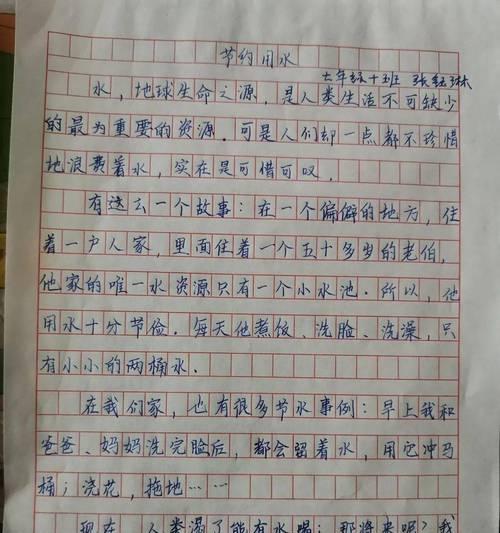 节约用水
七年级十班 张
水，地球生命之源，是人类生活不可缺少
的最为重要的资源．可是人们却一点都不珍惜
地浪费着水，实在是可惜可叹．
有这么一个故事：在一个偏僻的地方，住
着一户人家，里面住着一个五十多岁的老伯，
他家的唯一水资源只有一个小水池．所以，他
用水十分节俭．每天他煮饭、洗脸、洗澡，只
有小小的两桶水．
在我们家，也有很多节水事例：早上我和
爸爸、妈妈洗完脸后，都会留着水，用它冲马
桶；浇花，拖地……
现在，人类渴了能有水喝；那将来呢？我